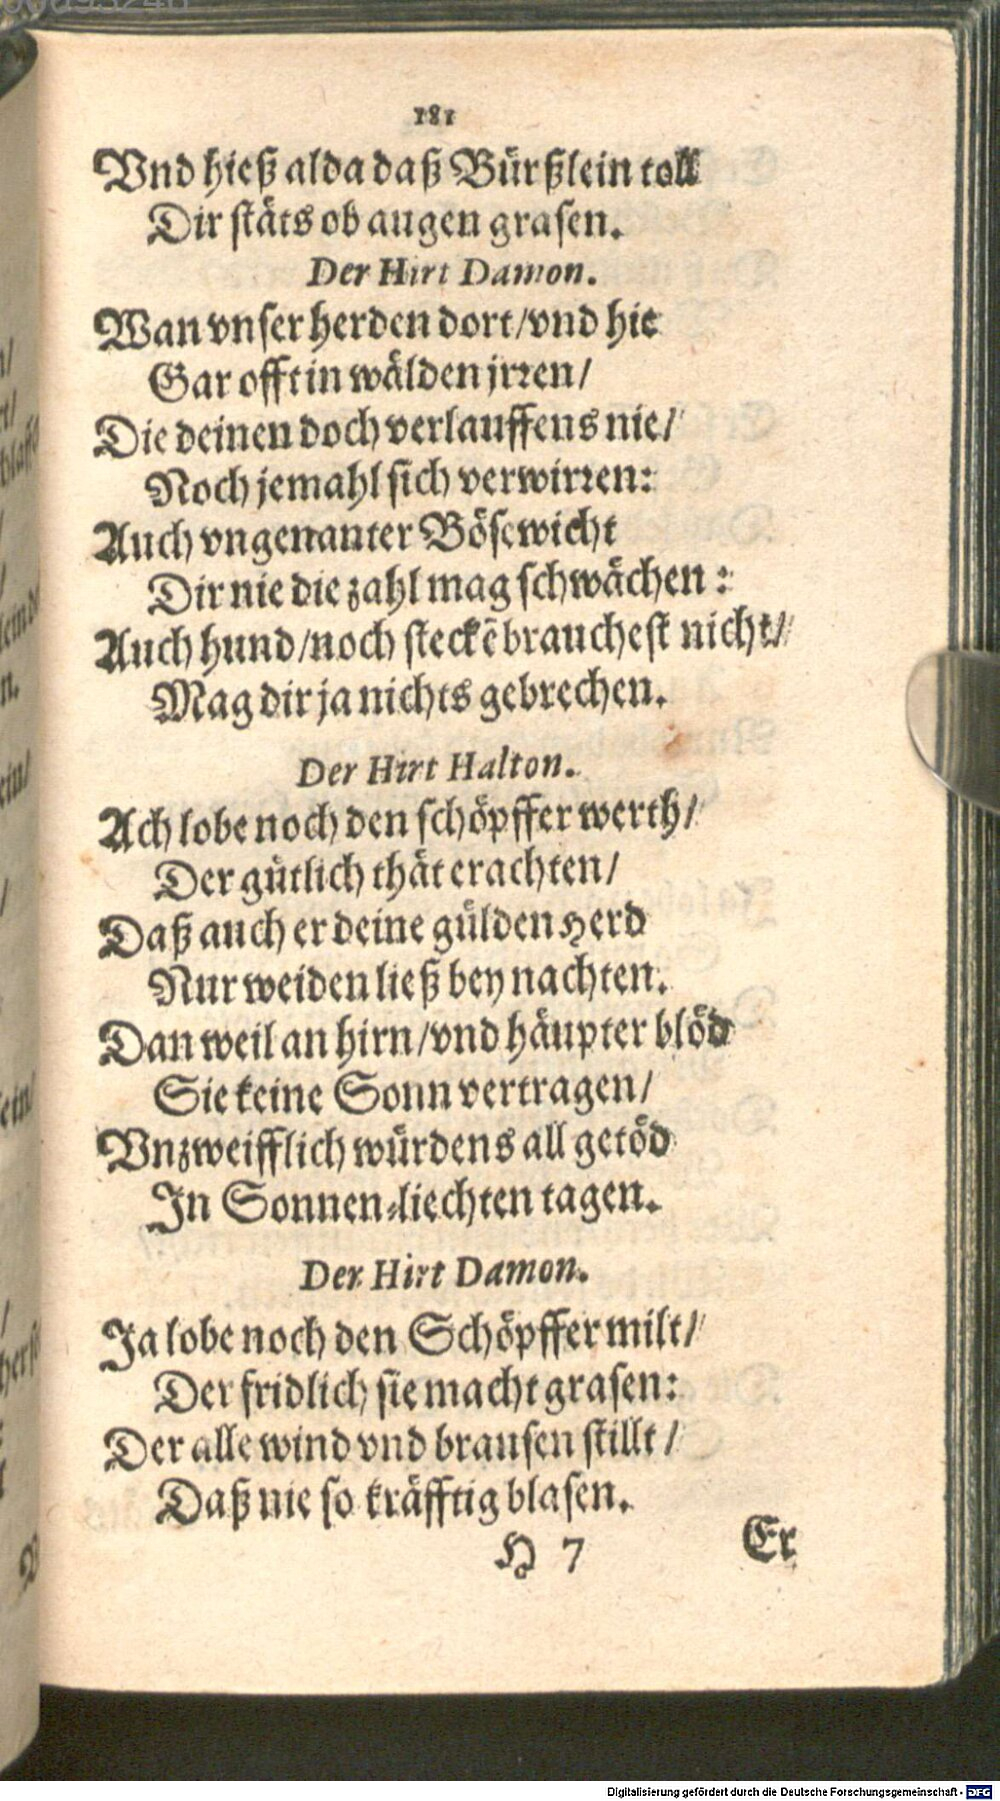 181
Vnd hieß alda daß Bürßlein toll
Dir stäts ob augen grasen.
Der Hirt Damon.
Wan vnser herden dort/vnd hie
Gar offt in wälden jrren/
Die deinen doch verlauffens nie/
Noch jemahl sich verwirren:
Auch vngenanter Bösewicht
Dir nie die zahl mag schwächen:
Auch hund/noch steckẽ brauchest nicht/
Mag dir ja nichts gebrechen.
Der Hirt Halton.
Ach lobe noch den schöpffer werth/
Der gütlich thät erachten/
Daß auch er deine gülden Herd
Nur weiden ließ bey nachten.
Dan weil an hirn/vnd häupter blöd
Sie keine Sonn vertragen/
Vnzweifflich würdens all getöd
In Sonnen-liechten tagen.
Der Hirt Damon.
Ja lobe noch den Schöpffer milt/
Der fridlich sie macht grasen:
Der alle wind vnd brausen stillt/
Daß nie so kräfftig blasen.
H 7 Er
Digitalisierung gefördert durch die Deutsche Forschungsgemeinschaft - DFG